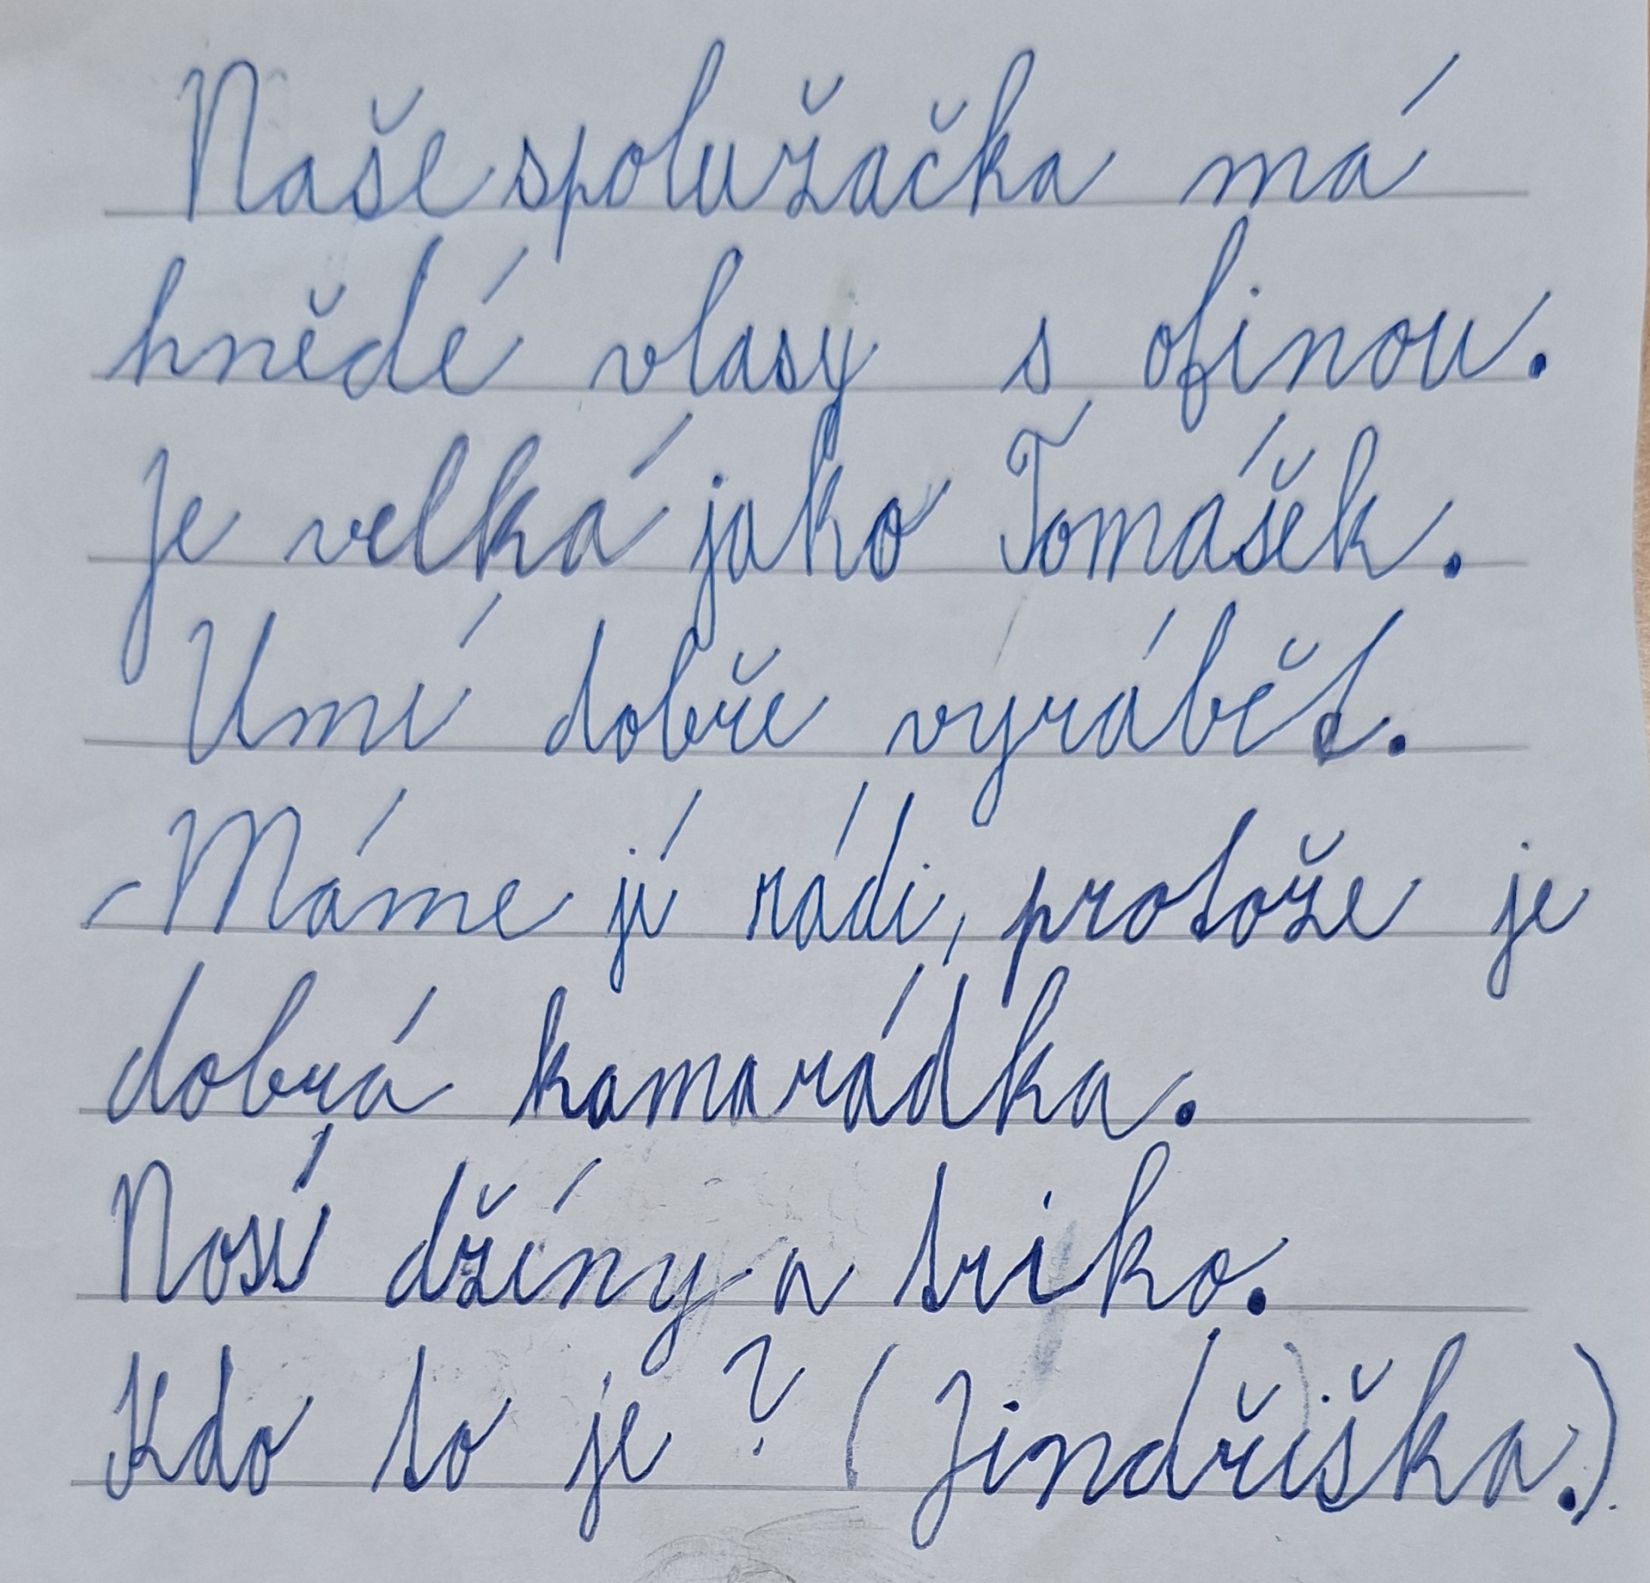 Naše spolužačka má
hnědé vlasy s ofinou.
Je velká jako Tomášek.
Umí dobře vyrábět.
Máme jí rádi, protože je
dobrá kamarádka.
Nosí džíny a triko.
Kdo to je? (Jindřiška.)